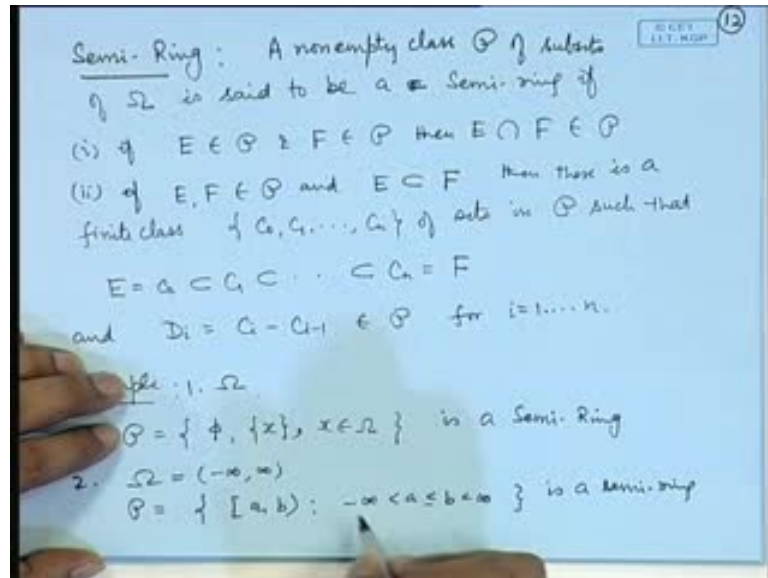 12
© CET
I.I.T. KGP
Semi-Ring : A nonempty class 𝒫 of subsets
of Ω is said to be a Semi-ring if
(i) if E ∈ 𝒫 & F ∈ 𝒫 then E ∩ F ∈ 𝒫
(ii) if E, F ∈ 𝒫 and E ⊂ F then there is a
finite class { C₀, C₁, ..., Cₙ } of sets in 𝒫 such that
E = C₀ ⊂ C₁ ⊂ ... ⊂ Cₙ = F
and Dᵢ = Cᵢ - Cᵢ₋₁ ∈ 𝒫 for i=1....n.
ple : 1. Ω
𝒫 = { ϕ, {x}, x ∈ Ω } is a Semi-Ring
2. Ω = (-∞, ∞)
𝒫 = { [a, b) : -∞ < a ≤ b < ∞ } is a semi-ring